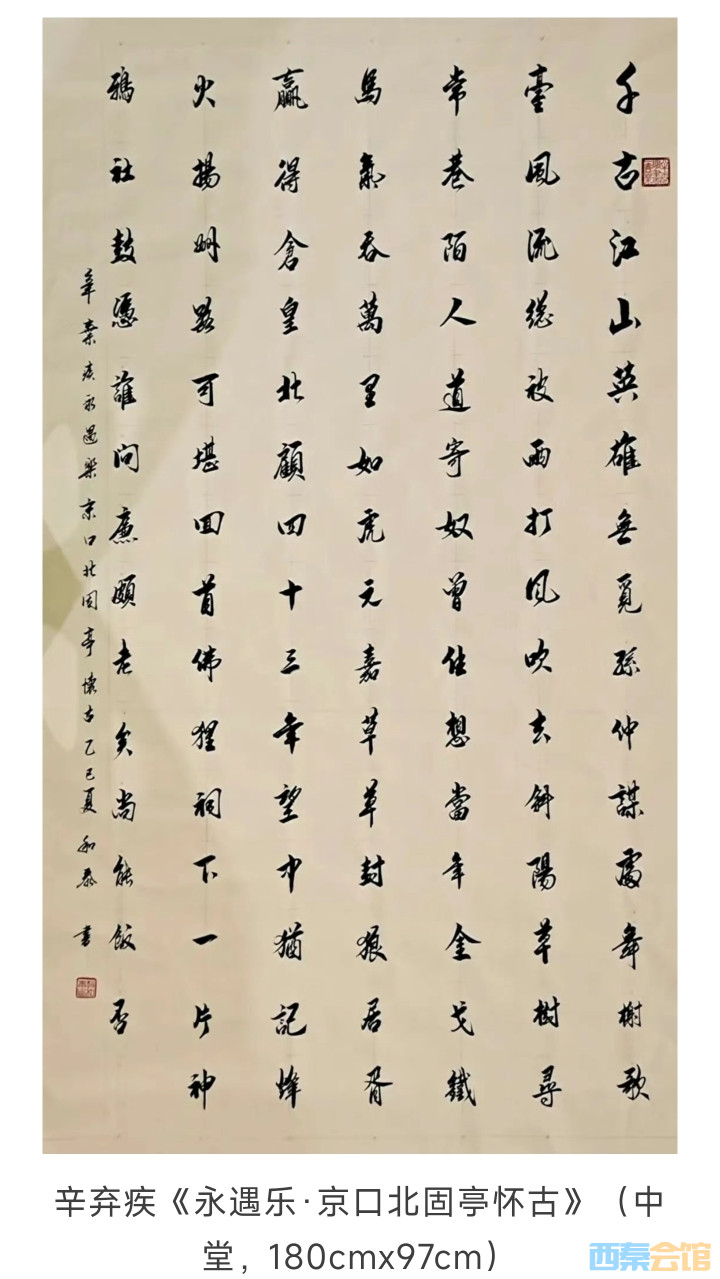 千古江山英雄無覓孫仲謀處舞榭歌
臺風流總被雨打風吹去斜陽草樹尋
常巷陌人道寄奴曾住想當年金戈鐵
馬氣吞萬里如虎元嘉草草封狼居胥
贏得倉皇北顧四十三年望中猶記烽
火揚州路可堪回首佛狸祠下一片神
鴉社鼓憑誰問廉頗老矣尚能飯否
辛棄疾永遇樂京口北固亭懷古乙巳夏和泰書
辛弃疾《永遇乐·京口北固亭怀古》（中
堂，180cmx97cm）
西秦会馆